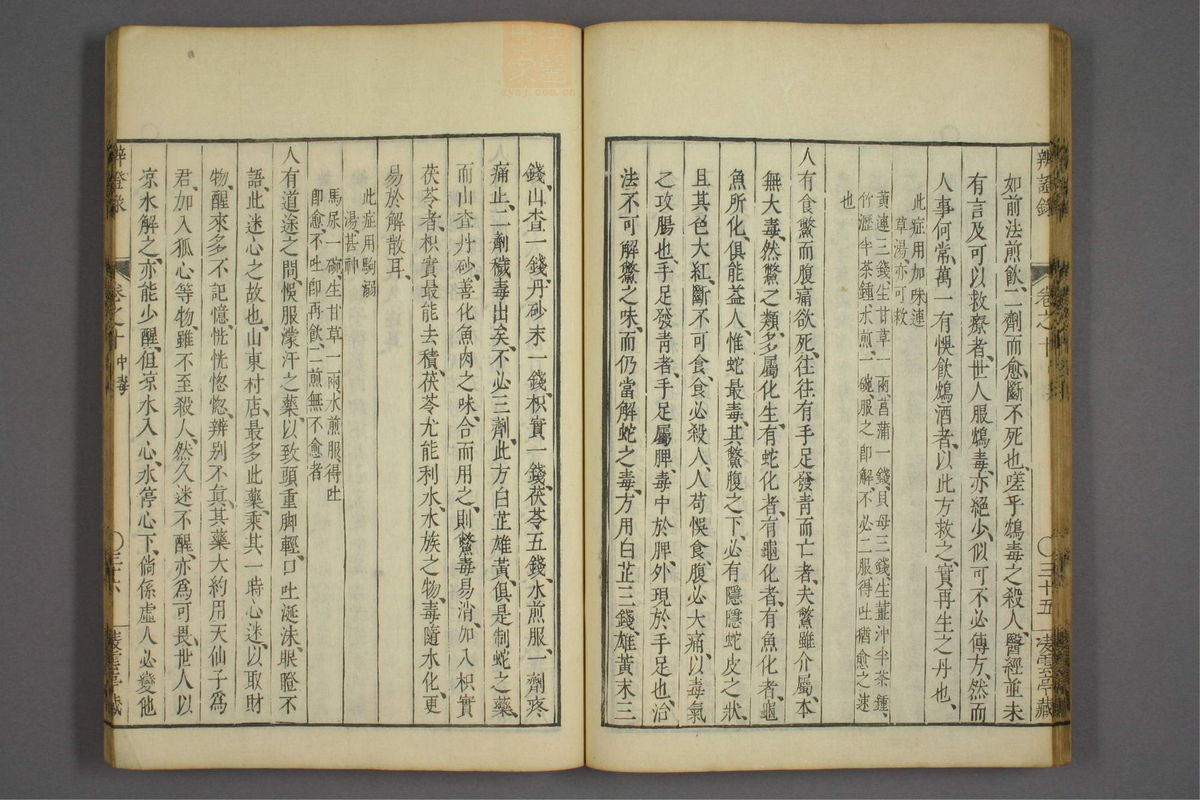 辨證錄
卷之十
三十五
凌雲亭藏
如前法煎飲、一劑而愈、斷不死也、嗟乎、鴆毒之殺人、醫經並未
有言及可以救療者、世人服鴆毒亦絕少、似可不必傳方、然而
人事何常、萬一有悞飲鴆酒者、以此方救之、實再生之丹也、
此症用加味連
草湯、亦可救
黃連三錢、生甘草一兩、菖蒲一錢、貝母三錢、生薑汁半茶鍾、
竹瀝半茶鍾、水煎一碗、服之即解、不必二服、得吐猶愈之速
也
人有食鱉而腹痛欲死、往往有手足發青而亡者、夫鱉雖介屬、本
無大毒、然鱉之類、多屬化生、有蛇化者、有龜化者、有魚化者、龜
魚所化、俱能益人、惟蛇最毒、其鱉腹之下、必有隱隱蛇皮之狀、
且其色大紅、斷不可食、食必殺人、人苟悞食、腹必大痛、以毒氣
之攻腸也、手足發青者、手足屬脾、毒中於脾、外現於手足也、治
法不可解鱉之味、而仍當解蛇之毒、方用白芷三錢、雄黃末三
錢、山查一錢、丹砂末一錢、枳實一錢、茯苓五錢、水煎服、一劑疼
痛止、二劑穢毒出矣、不必三劑、此方白芷雄黃、俱是制蛇之藥、
而山查丹砂、善化魚肉之味、合而用之、則鱉毒易消、加入枳實
茯苓者、枳實最能去積、茯苓尤能利水、水族之物、毒隨水化、更
易於解散耳、
此症用駒溺
湯、甚神
馬尿一碗、生甘草一兩、水煎服、得吐
即愈、不吐即再飲、二煎無不愈者
人有道途之間、悞服濛汗之藥、以致頭重脚輕、口吐涎沫、眼瞪不
語、此迷心之故也、山東村店、最多此藥、乘其一時心迷、以取財
物、醒來多不記憶、恍恍惚惚、辨別不眞、其藥大約用天仙子爲
君、加入狐心等物、雖不至殺人、然久迷不醒、亦爲可畏、世人以
凉水解之、亦能少醒、但凉水入心、水停心下、倘係虛人、必變他
辨證錄
卷之十 中毒
三十六
凌雲亭藏